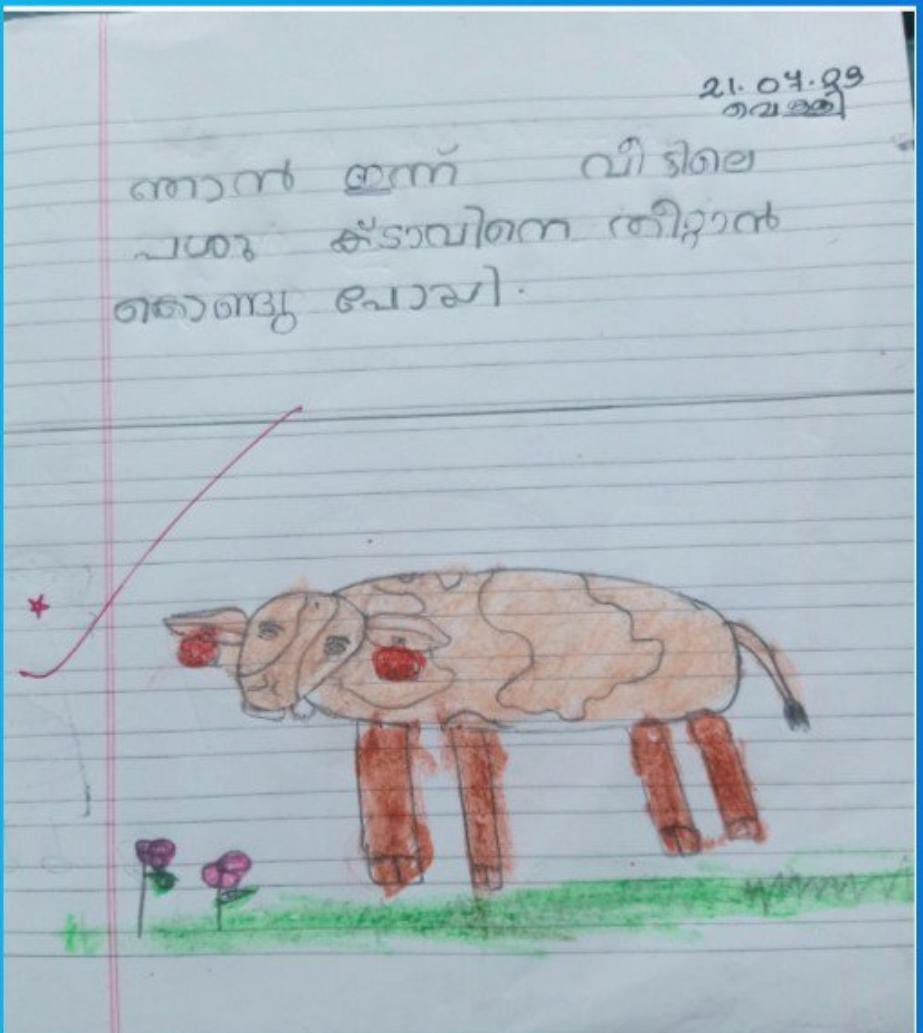 21.07.23
വെള്ളി
ഞാൻ ഇന്ന് വീട്ടിലെ
പശു ക്ടാവിനെ തീറ്റാൻ
കൊണ്ടു പോയി.